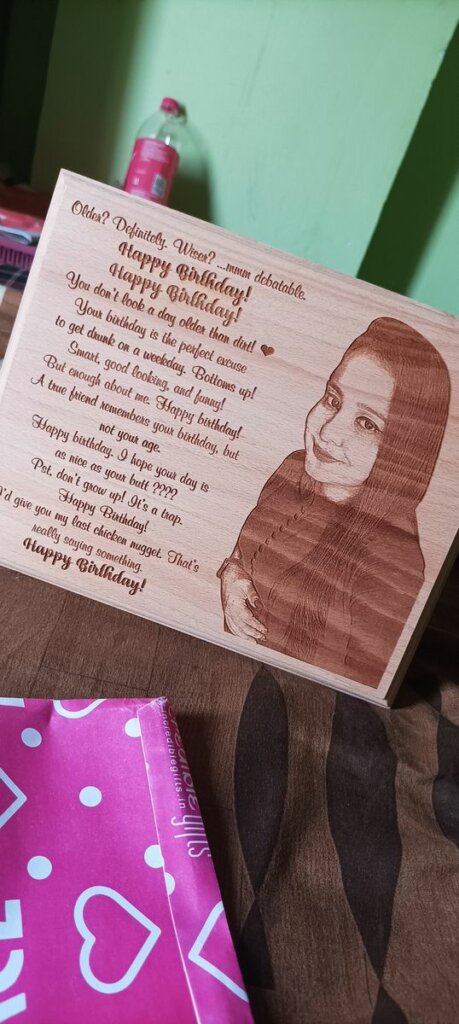 Older? Definitely. Wiser? ...mmm debatable.
Happy Birthday!
Happy Birthday!
You don't look a day older than dirt! ❤
Your birthday is the perfect excuse
to get drunk on a weekday. Bottoms up!
Smart, good looking, and funny!
But enough about me. Happy birthday!
A true friend remembers your birthday, but
not your age.
Happy birthday. I hope your day is
as nice as your butt ????
Pst, don't grow up! It's a trap.
Happy Birthday!
I'd give you my last chicken nugget. That's
really saying something.
Happy Birthday!
incrediblegifts.in
gifts